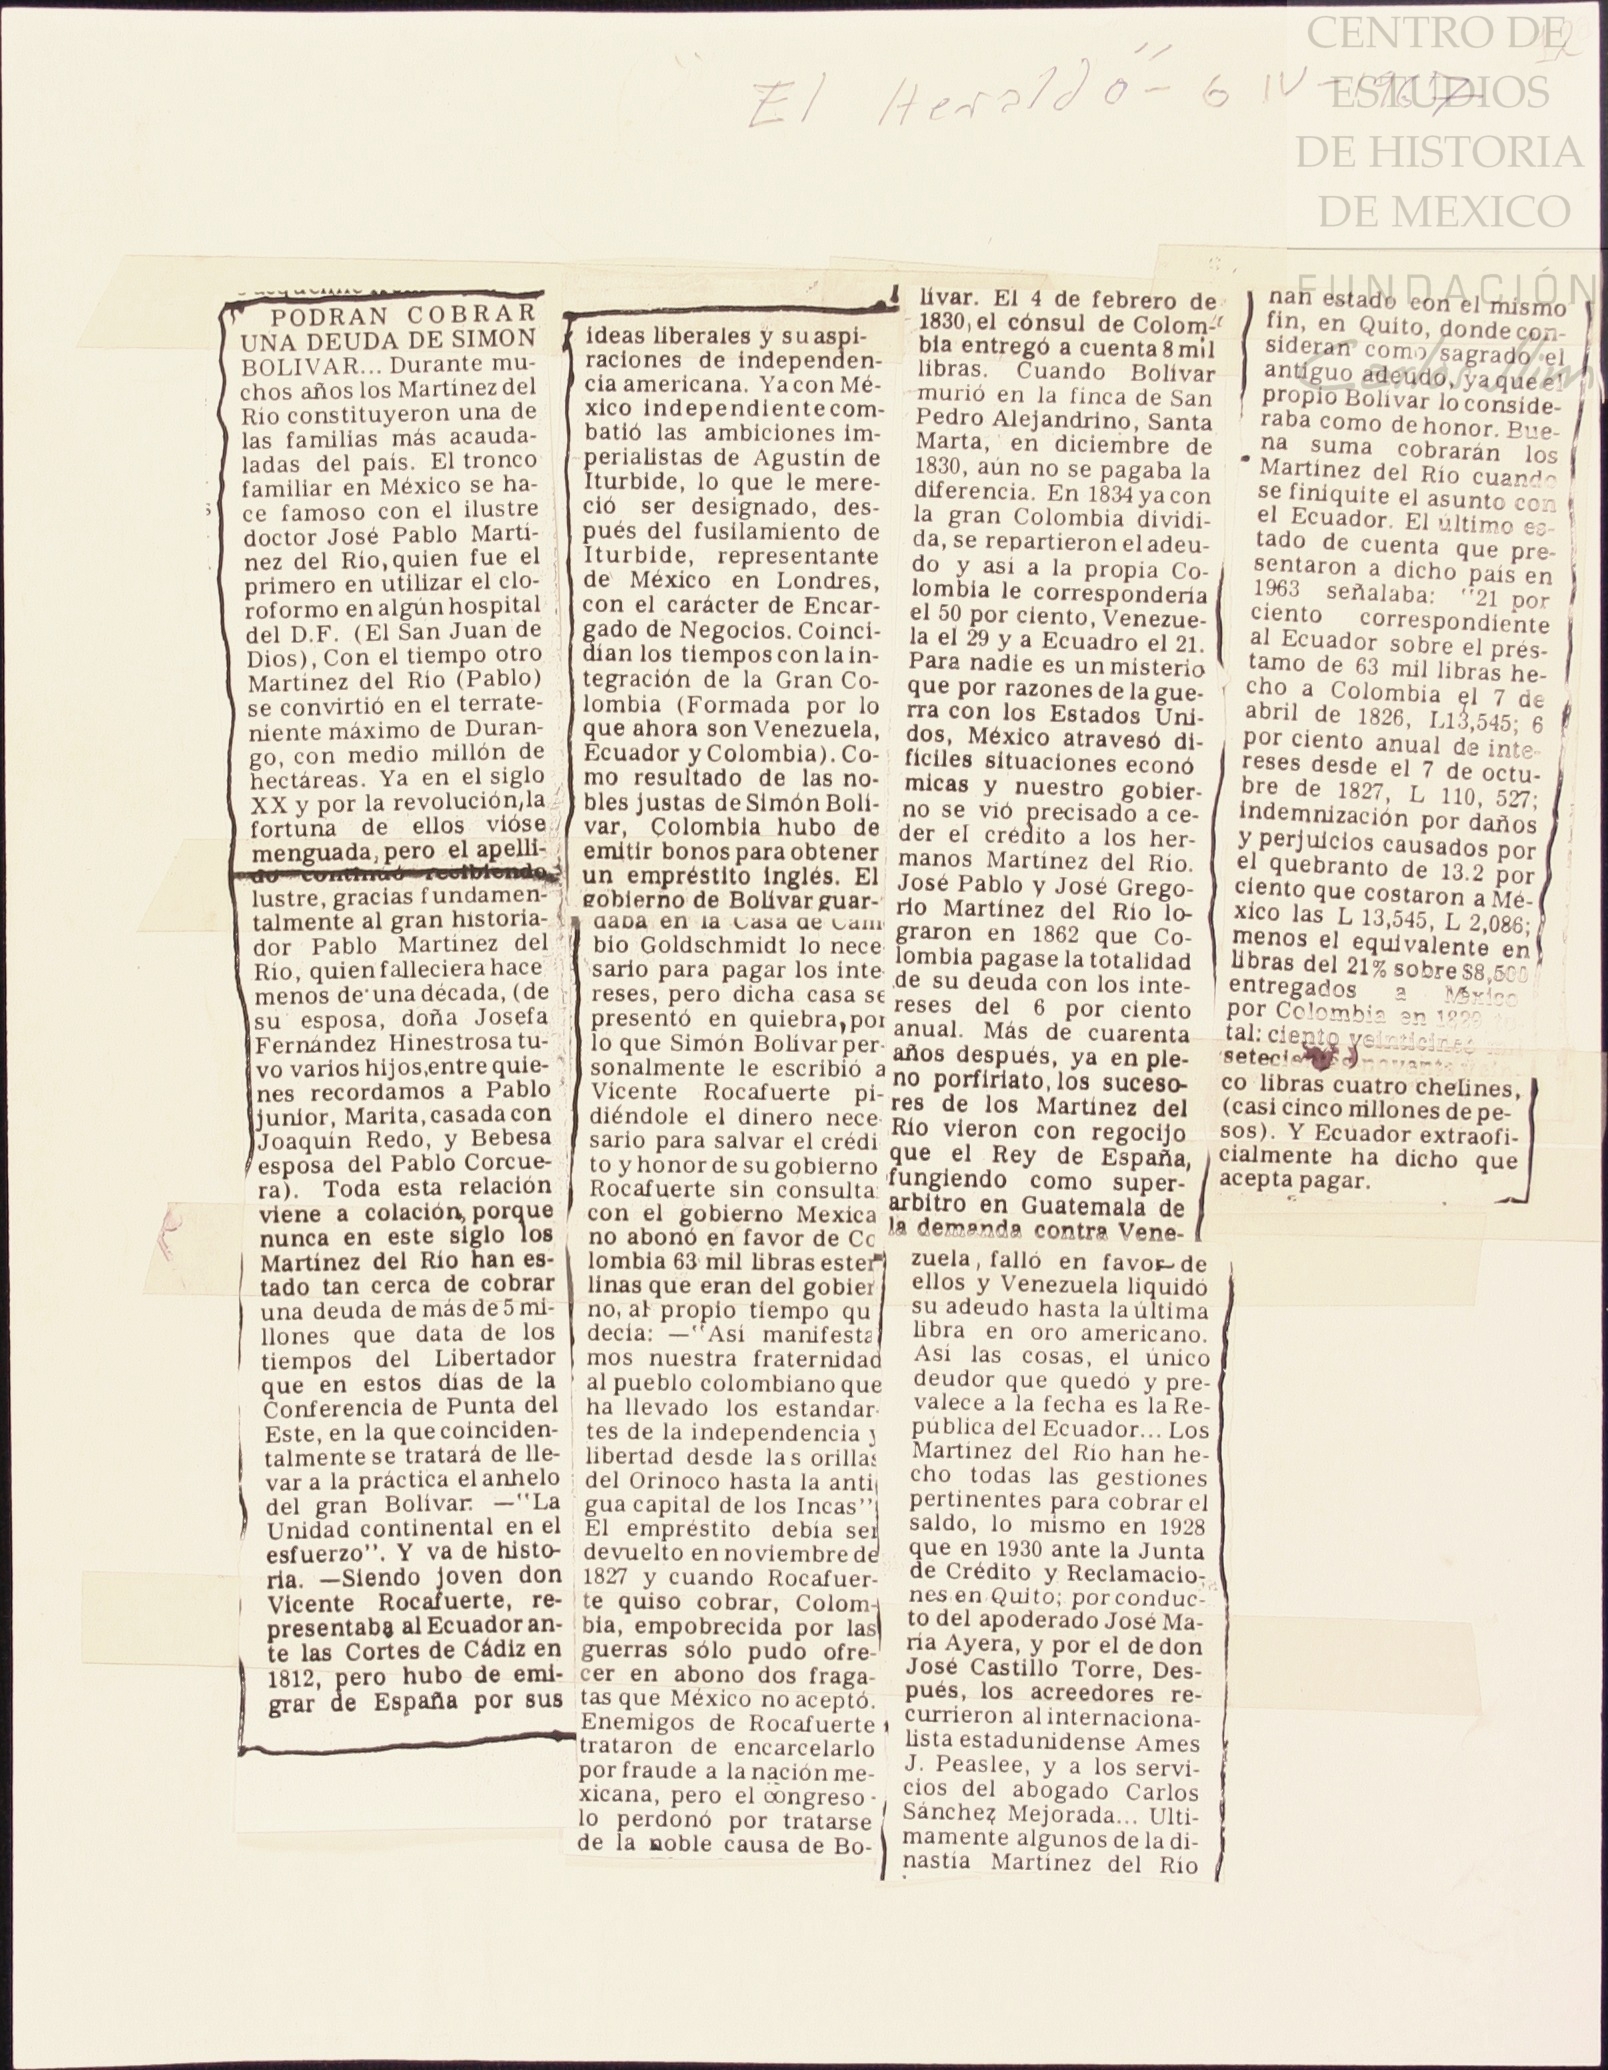 "El Heraldo" - 6 IV - 1967
CENTRO DE
ESTUDIOS
DE HISTORIA
DE MEXICO
FUNDACIÓN
Carlos Slim
PODRAN COBRAR
UNA DEUDA DE SIMON
BOLIVAR... Durante mu-
chos años los Martínez del
Río constituyeron una de
las familias más acauda-
ladas del país. El tronco
familiar en México se ha-
ce famoso con el ilustre
doctor José Pablo Martí-
nez del Río, quien fue el
primero en utilizar el clo-
roformo en algún hospital
del D.F. (El San Juan de
Dios), Con el tiempo otro
Martínez del Río (Pablo)
se convirtió en el terrate-
niente máximo de Duran-
go, con medio millón de
hectáreas. Ya en el siglo
XX y por la revolución, la
fortuna de ellos vióse
menguada, pero el apelli-
do continuó recibiendo
lustre, gracias fundamen-
talmente al gran historia-
dor Pablo Martínez del
Río, quien falleciera hace
menos de una década, (de
su esposa, doña Josefa
Fernández Hinestrosa tu-
vo varios hijos, entre quie-
nes recordamos a Pablo
junior, Marita, casada con
Joaquín Redo, y Bebesa
esposa del Pablo Corcue-
ra). Toda esta relación
viene a colación, porque
nunca en este siglo los
Martínez del Río han es-
tado tan cerca de cobrar
una deuda de más de 5 mi-
llones que data de los
tiempos del Libertador
que en estos días de la
Conferencia de Punta del
Este, en la que coinciden-
talmente se tratará de lle-
var a la práctica el anhelo
del gran Bolívar: —"La
Unidad continental en el
esfuerzo". Y va de histo-
ria. —Siendo joven don
Vicente Rocafuerte, re-
presentaba al Ecuador an-
te las Cortes de Cádiz en
1812, pero hubo de emi-
grar de España por sus
ideas liberales y su aspi-
raciones de independen-
cia americana. Ya con Mé-
xico independiente com-
batió las ambiciones im-
perialistas de Agustín de
Iturbide, lo que le mere-
ció ser designado, des-
pués del fusilamiento de
Iturbide, representante
de México en Londres,
con el carácter de Encar-
gado de Negocios. Coinci-
dían los tiempos con la in-
tegración de la Gran Co-
lombia (Formada por lo
que ahora son Venezuela,
Ecuador y Colombia). Co-
mo resultado de las no-
bles justas de Simón Bolí-
var, Colombia hubo de
emitir bonos para obtener
un empréstito inglés. El
gobierno de Bolívar guar-
daba en la Casa de Cam
bio Goldschmidt lo nece
sario para pagar los inte
reses, pero dicha casa se
presentó en quiebra, por
lo que Simón Bolívar per-
sonalmente le escribió a
Vicente Rocafuerte pi-
diéndole el dinero nece
sario para salvar el crédi
to y honor de su gobierno
Rocafuerte sin consulta
con el gobierno Mexica
no abonó en favor de Co
lombia 63 mil libras ester
linas que eran del gobier
no, al propio tiempo qu
decía: —"Así manifesta
mos nuestra fraternidad
al pueblo colombiano que
ha llevado los estandar-
tes de la independencia y
libertad desde las orillas
del Orinoco hasta la anti
gua capital de los Incas"
El empréstito debía ser
devuelto en noviembre de
1827 y cuando Rocafuer-
te quiso cobrar, Colom-
bia, empobrecida por las
guerras sólo pudo ofre-
cer en abono dos fraga-
tas que México no aceptó.
Enemigos de Rocafuerte
trataron de encarcelarlo
por fraude a la nación me-
xicana, pero el congreso
lo perdonó por tratarse
de la noble causa de Bo-
lívar. El 4 de febrero de
1830, el cónsul de Colom-
bia entregó a cuenta 8 mil
libras. Cuando Bolívar
murió en la finca de San
Pedro Alejandrino, Santa
Marta, en diciembre de
1830, aún no se pagaba la
diferencia. En 1834 ya con
la gran Colombia dividi-
da, se repartieron el adeu-
do y así a la propia Co-
lombia le correspondería
el 50 por ciento, Venezue-
la el 29 y a Ecuadro el 21.
Para nadie es un misterio
que por razones de la gue-
rra con los Estados Uni-
dos, México atravesó di-
fíciles situaciones econó
micas y nuestro gobier-
no se vió precisado a ce-
der el crédito a los her-
manos Martínez del Río.
José Pablo y José Grego-
rio Martínez del Río lo-
graron en 1862 que Co-
lombia pagase la totalidad
de su deuda con los inte-
reses del 6 por ciento
anual. Más de cuarenta
años después, ya en ple-
no porfiriato, los suceso-
res de los Martínez del
Río vieron con regocijo
que el Rey de España,
fungiendo como super-
arbitro en Guatemala de
la demanda contra Vene-
zuela, falló en favor de
ellos y Venezuela liquidó
su adeudo hasta la última
libra en oro americano.
Así las cosas, el único
deudor que quedó y pre-
valece a la fecha es la Re-
pública del Ecuador... Los
Martínez del Río han he-
cho todas las gestiones
pertinentes para cobrar el
saldo, lo mismo en 1928
que en 1930 ante la Junta
de Crédito y Reclamacio-
nes en Quito; por conduc-
to del apoderado José Ma-
ría Ayera, y por el de don
José Castillo Torre, Des-
pués, los acreedores re-
currieron al internaciona-
lista estadunidense Ames
J. Peaslee, y a los servi-
cios del abogado Carlos
Sánchez Mejorada... Ulti-
mamente algunos de la di-
nastía Martínez del Río
han estado con el mismo
fin, en Quito, donde con-
sideran como sagrado el
antiguo adeudo, ya que el
propio Bolívar lo conside-
raba como de honor. Bue-
na suma cobrarán los
Martínez del Río cuando
se finiquite el asunto con
el Ecuador. El último es-
tado de cuenta que pre-
sentaron a dicho país en
1963 señalaba: "21 por
ciento correspondiente
al Ecuador sobre el prés-
tamo de 63 mil libras he-
cho a Colombia el 7 de
abril de 1826, L13,545; 6
por ciento anual de inte-
reses desde el 7 de octu-
bre de 1827, L 110, 527;
indemnización por daños
y perjuicios causados por
el quebranto de 13.2 por
ciento que costaron a Mé-
xico las L 13,545, L 2,086;
menos el equivalente en
libras del 21% sobre $8,500
entregados a México
por Colombia en 1829
tal: ciento veinticinco
setecie novanta
co libras cuatro chelines,
(casi cinco millones de pe-
sos). Y Ecuador extraofi-
cialmente ha dicho que
acepta pagar.